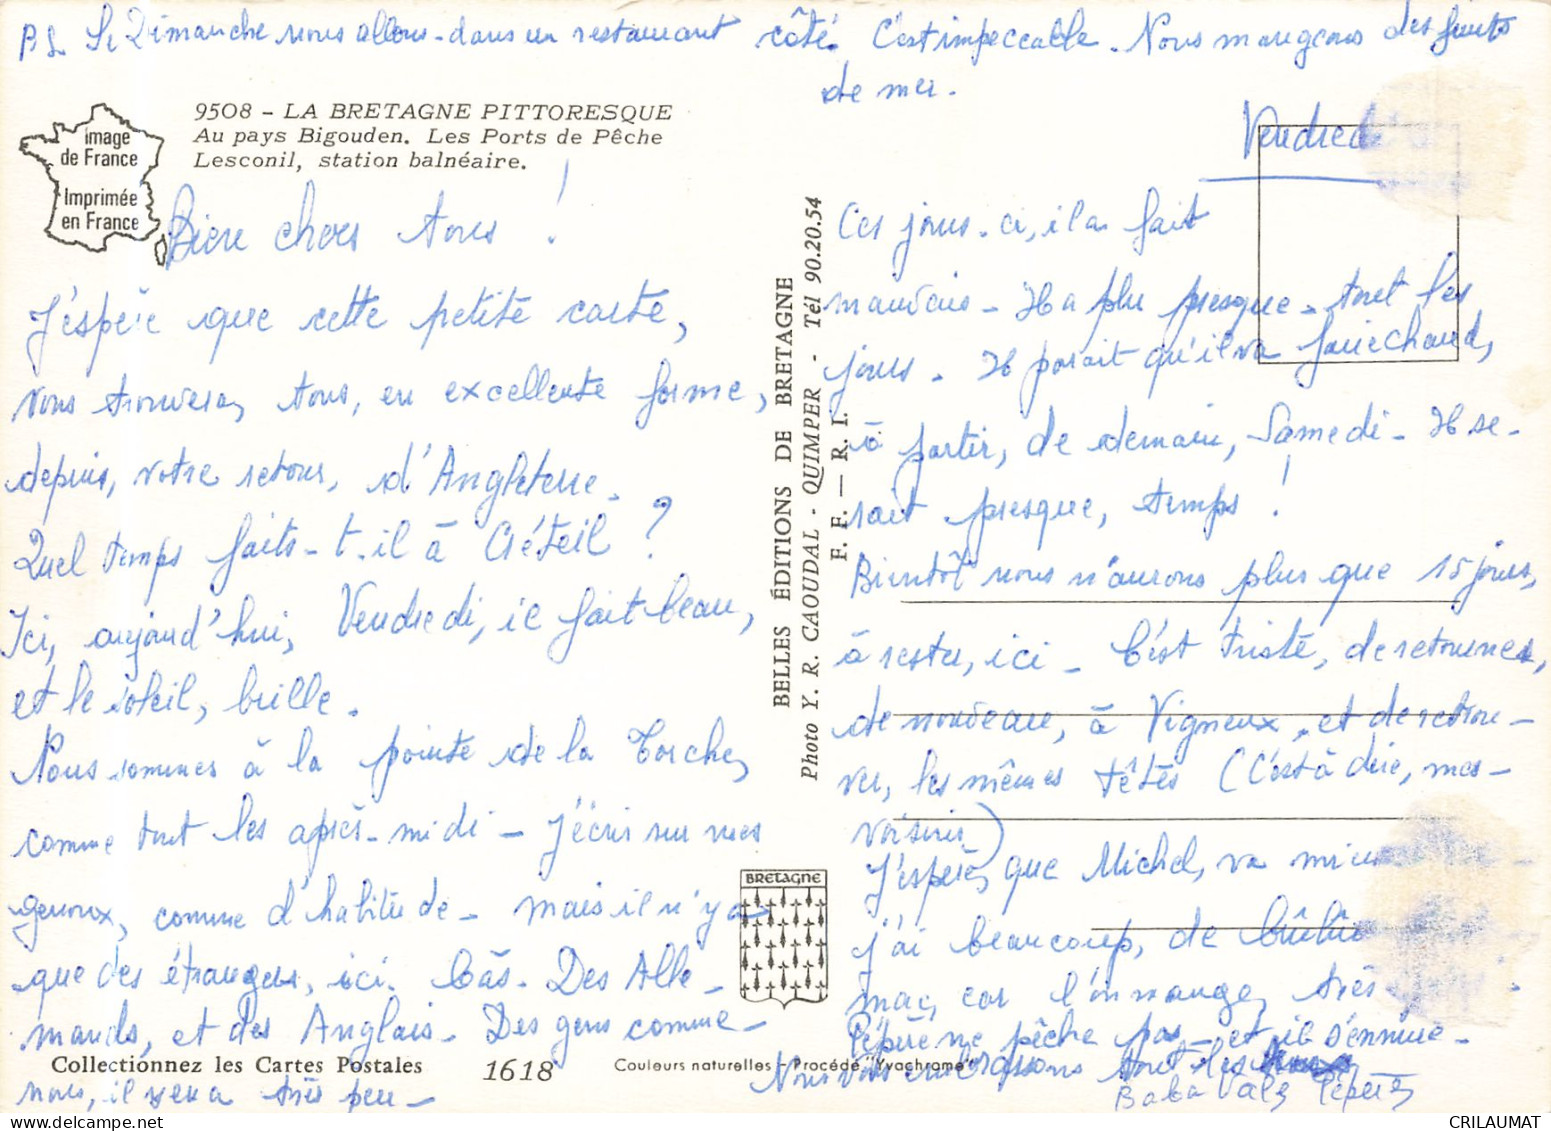 PS. Si Dimanche nous allons dans un restaurant côté. C'est impeccable. Nous mangeons des fruits
de mer.
9508 - LA BRETAGNE PITTORESQUE
Au pays Bigouden. Les Ports de Pêche
Lesconil, station balnéaire.
image
de France
Imprimée
en France
Bien chers tous !
J'espère que cette petite carte,
vous trouvera, tous, en excellente forme,
depuis, votre retour, d'Angleterre.
Quel temps faits-t-il à Créteil ?
Ici, aujourd'hui, Vendredi, il fait beau,
et le soleil, brille.
Nous sommes à la pointe de la Torche,
comme tout les après-midi - J'écris sur mes
genoux, comme d'habitude - mais il n'y a
que des étrangers, ici. Bas. Des Alle-
mands, et des Anglais - Des gens comme -
nous, il y en a très peu -
Collectionnez les Cartes Postales
1618
Couleurs naturelles - Procédé "Yvachrome"
BELLES ÉDITIONS DE BRETAGNE
Photo Y. R. CAOUDAL - QUIMPER - Tél 90.20.54
F. F. — R. I.
BRETAGNE
Vendredi
Ces jours-ci, il a fait
mauvais - Il a plu presque - tout les
jours - Il parait qu'il va faire chaud,
à partir, de demain, Samedi - Il se-
rait presque, temps !
Bientôt nous n'aurons plus que 15 jours,
à rester, ici - C'est triste, de retourner,
de nouveau, à Vigneux, et de retrou-
ver, les mêmes têtes (C'est à dire, mes -
voisins)
J'espère, que Michel, va mieux
j'ai beaucoup, de
mac, car l'on mange, très -
Pépère ne pêche pas - et il s'ennuie -
Nous vous embrassons tout les
Baba Valy Pépère
CRILAUMAT